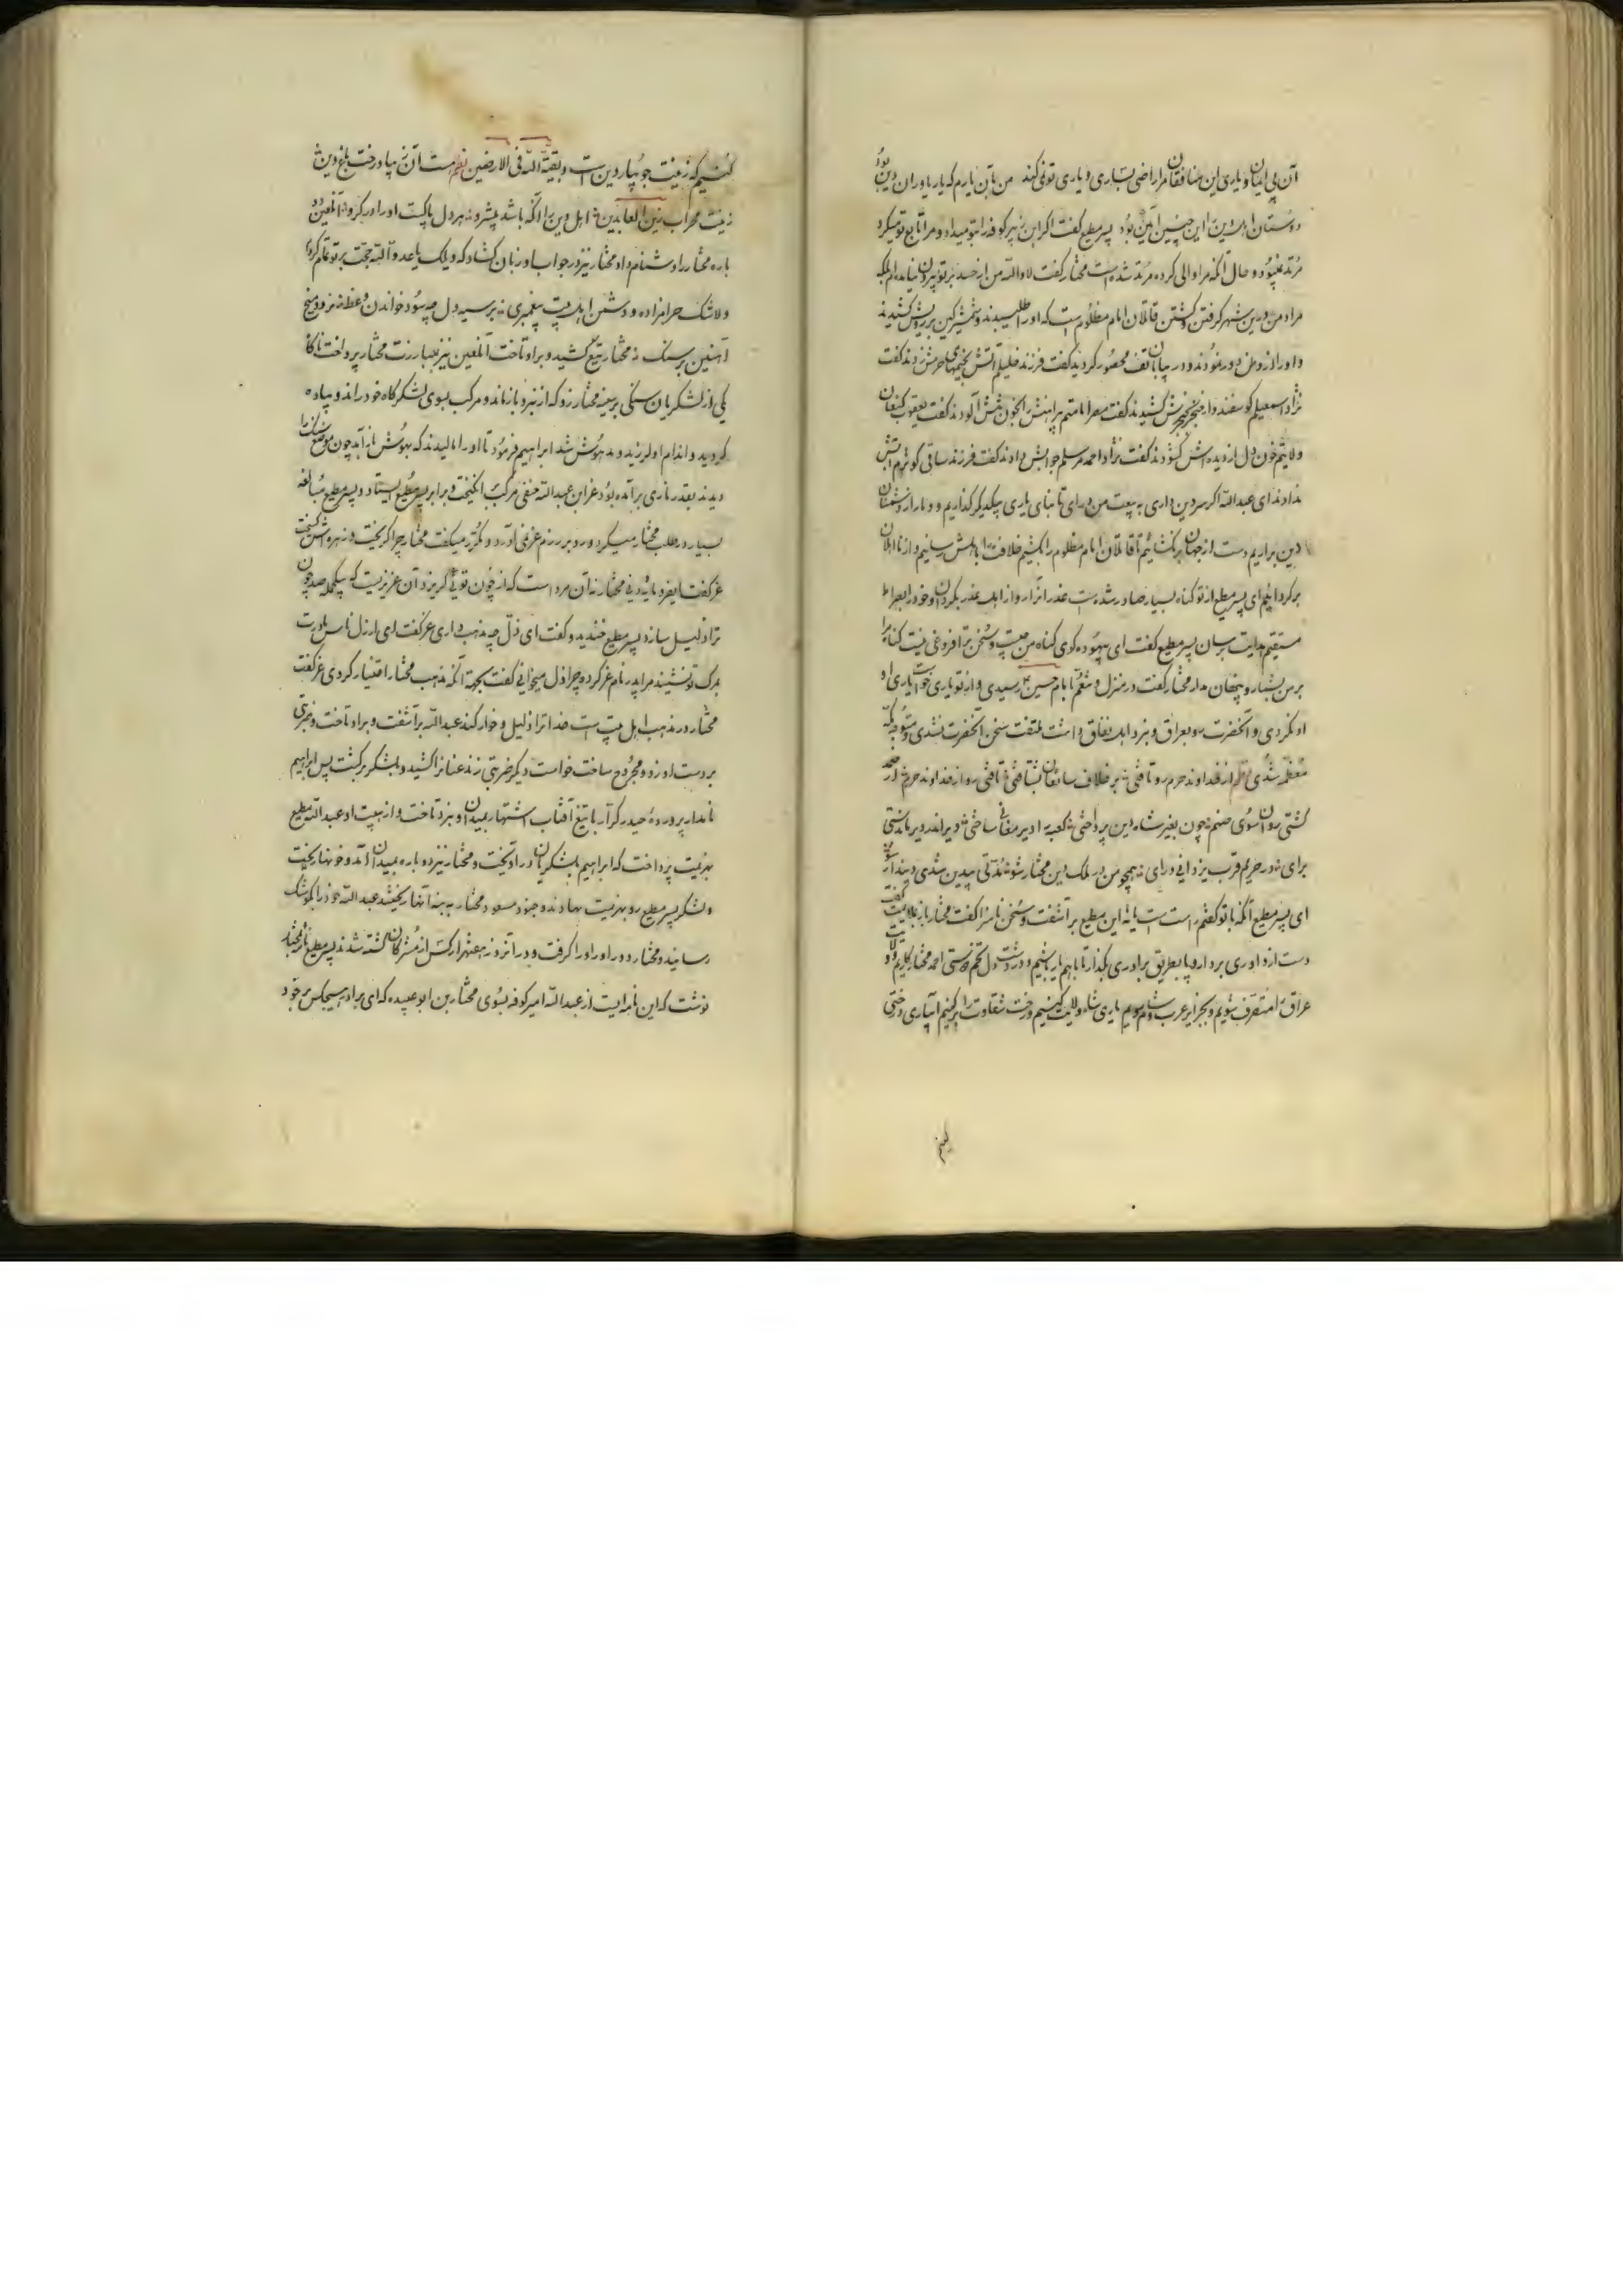 آن بی ایمان و یاری این منافقان مرا راضی بیاری و یاری تو نمی کند من بآن یارم که یار یاوران دین بود
دوستان اهل دین این چنین آئین بود پسر مطیع گفت اگر ابن زبیر کوفه را بتو میداد و مرا تابع تو میکرد
مرتد نمیبود و حال آنکه مرا والی کرده مرتد شده است مختار گفت لا والله من از حسد بر تو بیرون نیامده ام بلکه
مراد من درین شهر گرفتن و کشتن قاتلان امام مظلوم است که او را طلبیدند و شمشیر کین بر رویش کشیدند
و او را از وطن دور نمودند و در بیابان تف محصور کردند گفت فرزند خلیلم آتش بخیمهای حرمش زدند گفت
نژاد اسمعیلم گوسفندوار خنجر بحنجرش کشیدند گفت مصر امامتم پیراهنش را بخون تنش آلودند گفت یعقوب کنعان
ولایتم خون دل از دیده اش گشودند گفت نژاد احمد مرسلم جوابش دادند گفت فرزند ساقی کوثرم آبش
ندادند ای عبدالله اگر سر دین داری به بیعت من درای تا بنای یاری بیکدیگر گذاریم و دمار از دشمنان
دین براریم دست از جهان برگشائیم تا قاتلان امام مظلوم را بکشیم خلافت را باهلش رسانیم و از نااهلان
برگردانیم ای پسر مطیع از تو گناه بسیار صادر شده است عذر آنرا رواز اهل عذر بگردان و خود را بصراط
مستقیم هدایت برسان پسر مطیع گفت ای بیهوده گوی گناه من چیست و سخن ترا فروغی نیست گناه مرا
بر من بشمار و پنهان مدار مختار گفت در منزل و شغم با امام حسین ع رسیدی و از تو یاری خواست یاری او
او نکردی و آنحضرت رو بعراق و نبرد اهل نفاق داشت ملتفت سخن آنحضرت نشدی و متوجه مکه
معظمه شدی نظم از خداوند حرم رو تافتی بر خلاف سابقان بشتافتی تافتی رو از خداوند حرم
گشتی روان سوی صنم چون بغیر شاه دین پرداختی کعبه را دیر مغانی ساختی دیر اندر دیر ماندستی
برای در حریم قرب یزدانی درای همچو من در ملک دین مختار شو مدتی بیدین شدی دیندار شو
ای پسر مطیع آنکه با تو گفتم راست است یا نه ابن مطیع برآشفت و سخن ناسزا گفت مختار باز بملایمت گفت
دست از داوری بردار و پا بطریق برادری بگذار تا باهم یار باشیم و در دشت دل تخم دوستی احمد مختار کاریم ولایت
عراق را متصرف شویم و بجزایر عرب و شام رویم یاری شاه ولایت کنیم درخت شقاوت را برکنیم آبیاری درختی
کنیم که زینت جویبار دین است و بقیة الله فی الارضین نظم هست آن زیبا درخت باغ دین
زینت محراب زین العابدین اهل دین را آنکه باشد پیشرو هر دل پاکست او را در گرو آن لعین دو
باره مختار را دشنام داد مختار نیز در جواب او زبان گشاد که ویلک یا عدو الله حجت بر تو تمام کردم
ولاشک حرامزاده و دشمن اهل بیت پیغمبری بر سیه دل چه سود خواندن وعظ نرود میخ
آهنین بر سنگ مختار تیغ کشید و بر او تاخت آن لعین نیز بمبارزت مختار پرداخت ناگاه
یکی از لشکریان سنگی بر سینه مختار زد که از نبرد بازماند و مرکب بسوی لشکرگاه خود راند و پیاده
گردید و اندام او لرزید و مدهوش شد ابراهیم فرمود تا او را مالیدند که بهوش باز آمد چون موضع سنگ را
دیدند بقدر ناری برآمده بود عز ابن عبدالله حنفی مرکب انگیخت و برابر پسر مطیع ایستاد و پسر مطیع مبالغه
بسیار در طلب مختار میکرد و رو برزم عز نمی آورد و مکرر میگفت مختار چرا گریخت و زهره اش گسیخت
عز گفت ایفرومایه دنی مختار نه آن مرد است که از چون توئی گریزد آن عزیزیست که بیکحمله صد چون
ترا ذلیل سازد پسر مطیع خندید و گفت ای ذل چه مذهب داری عز گفت ای ارذل ناس مادرت
بمرگ تو نشیند مرا پدر نام عز کرده چرا ذل میخوانی گفت بجهة آنکه مذهب مختار اختیار کردی عز گفت
مختار در مذهب اهل بیت است خدا ترا ذلیل و خوار کند عبدالله برآشفت و بر او تاخت و ضربتی
بر دست او زد و مجروح ساخت خواست دیگر ضربتی زند عنان را کشید و بلشکر برگشت پس ابراهیم
نامدار پرورده حیدر کرار با تیغ آفتاب اشتهار بمیدان او بنبرد تاخت و از هیبت او عبدالله مطیع
بهزیمت پرداخت که ابراهیم بلشکریان در آویخت و مختار نیز دوباره بمیدان آمد و خونها ریخت
و لشکر پسر مطیع رو بهزیمت نهادند و جنود مسعود مختار به بنه آنها ریختند عبدالله خود را بکوشک
رسانید و مختار دور او را گرفت و در آنروز هزار کس از مشرکان کشته شدند پسر مطیع نامه بمختار
نوشت که این نامه ایست از عبدالله امیر کوفه بسوی مختار بن ابوعبیده که ای برادر هیچکس بر خود